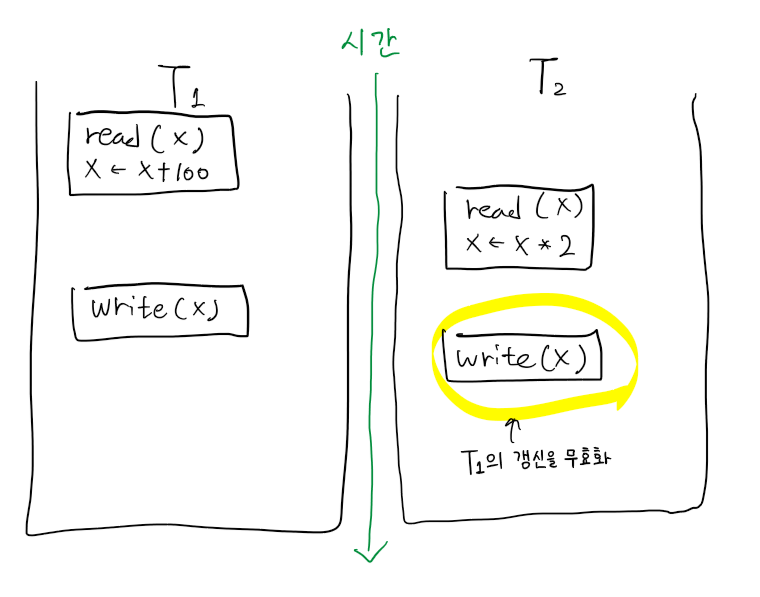 시간
T₁
read (x)
x ← x+100
write(x)
T₂
read (x)
x ← x * 2
write(x)
T₁의 갱신을 무효화